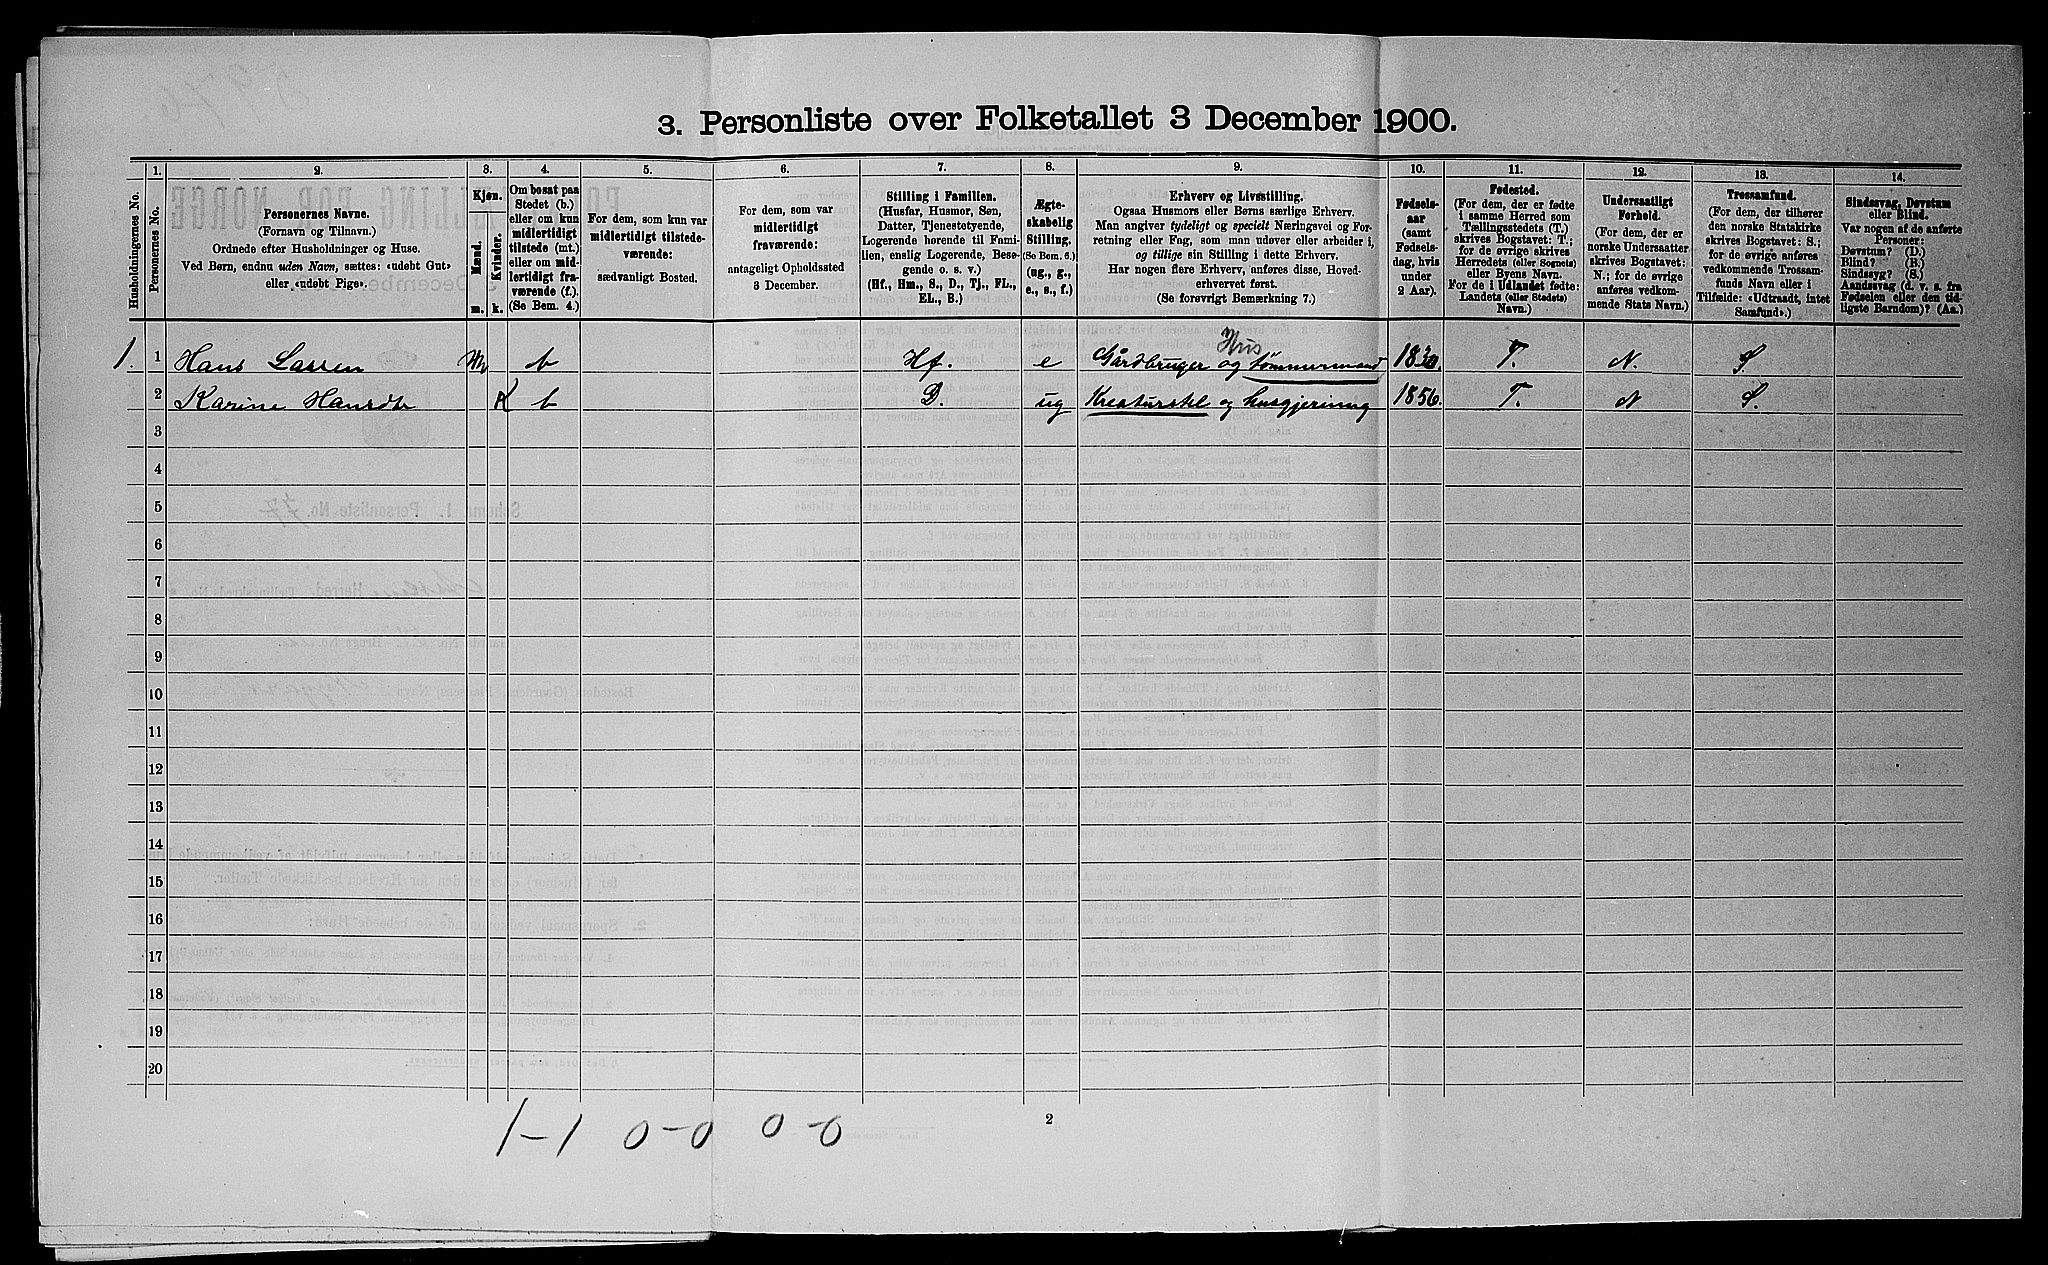 3. Personliste over Folketallet 3 December 1900.
Husholdningernes No.
1.
Personernes No.
2.
Personernes Navne.
(Fornavn og Tilnavn.)
Ordnede efter Husholdninger og Huse.
Ved Børn, endnu uden Navn, sættes: «udøbt Gut»
eller «udøbt Pige».
3.
Kjøn.
Mænd.
Kvinder.
m. k.
4.
Om bosat paa
Stedet (b.)
eller om kun
midlertidigt
tilstede (mt.)
eller om mid-
lertidigt fra-
værende (f.).
(Se Bem. 4.)
5.
For dem, som kun var
midlertidigt tilstede-
værende:
sædvanligt Bosted.
6.
For dem, som var
midlertidigt
fraværende:
antageligt Opholdssted
3 December.
7.
Stilling i Familien.
(Husfar, Husmor, Søn,
Datter, Tjenestetyende,
Logerende hørende til Fami-
lien, enslig Logerende, Besø-
gende o. s. v.)
(Hf., Hm., S., D., Tj., FL.,
EL., B.)
8.
Ægte-
skabelig
Stilling.
(Se Bem. 6.)
(ug., g.,
e., s., f.)
9.
Erhverv og Livsstilling.
Ogsaa Husmors eller Børns særlige Erhverv.
Man angiver tydeligt og specielt Næringsvei og For-
retning eller Fag, som man udøver eller arbeider i,
og tillige sin Stilling i dette Erhverv.
Har nogen flere Erhverv, anføres disse, Hoved-
erhvervet først.
(Se forøvrigt Bemærkning 7.)
10.
Fødsels-
aar
(samt
Fødsels-
dag, hvis
under
2 Aar).
11.
Fødested.
(For dem, der er fødte
i samme Herred som
Tællingsstedets (T.)
skrives Bogstavet: T.;
for de øvrige skrives
Herredets (eller Sognets)
eller Byens Navn.
For de i Udlandet fødte:
Landets (eller Stedets)
Navn.)
12.
Undersaatligt
Forhold.
(For dem, der er
norske Undersaatter
skrives Bogstavet:
N.; for de øvrige
anføres vedkom-
mende Stats Navn.)
13.
Trossamfund.
(For dem, der tilhører
den norske Statskirke
skrives Bogstavet: S.;
for de øvrige anføres
vedkommende Trossam-
funds Navn eller i
Tilfælde: «Udtraadt, intet
Samfund».)
14.
Sindssvag, Døvstum
eller Blind.
Var nogen af de anførte
Personer:
Døvstum? (D.)
Blind? (B.)
Sindssyg? (S.)
Aandssvag (d. v. s. fra
Fødselen eller den tid-
ligste Barndom)? (Aa.)
Hus
1. 1 Hans Larsen M b Hf. e Gårdbruger og tømmermand T. N. S.
2 Karine Hansdtr K b D. ug Kreaturstel og husgjerning 1856. T. N S.
3
4
5
6
7
8
9
10
11
12
13
14
15
16
17
18
19
20
1-1 0-0 0-0
2